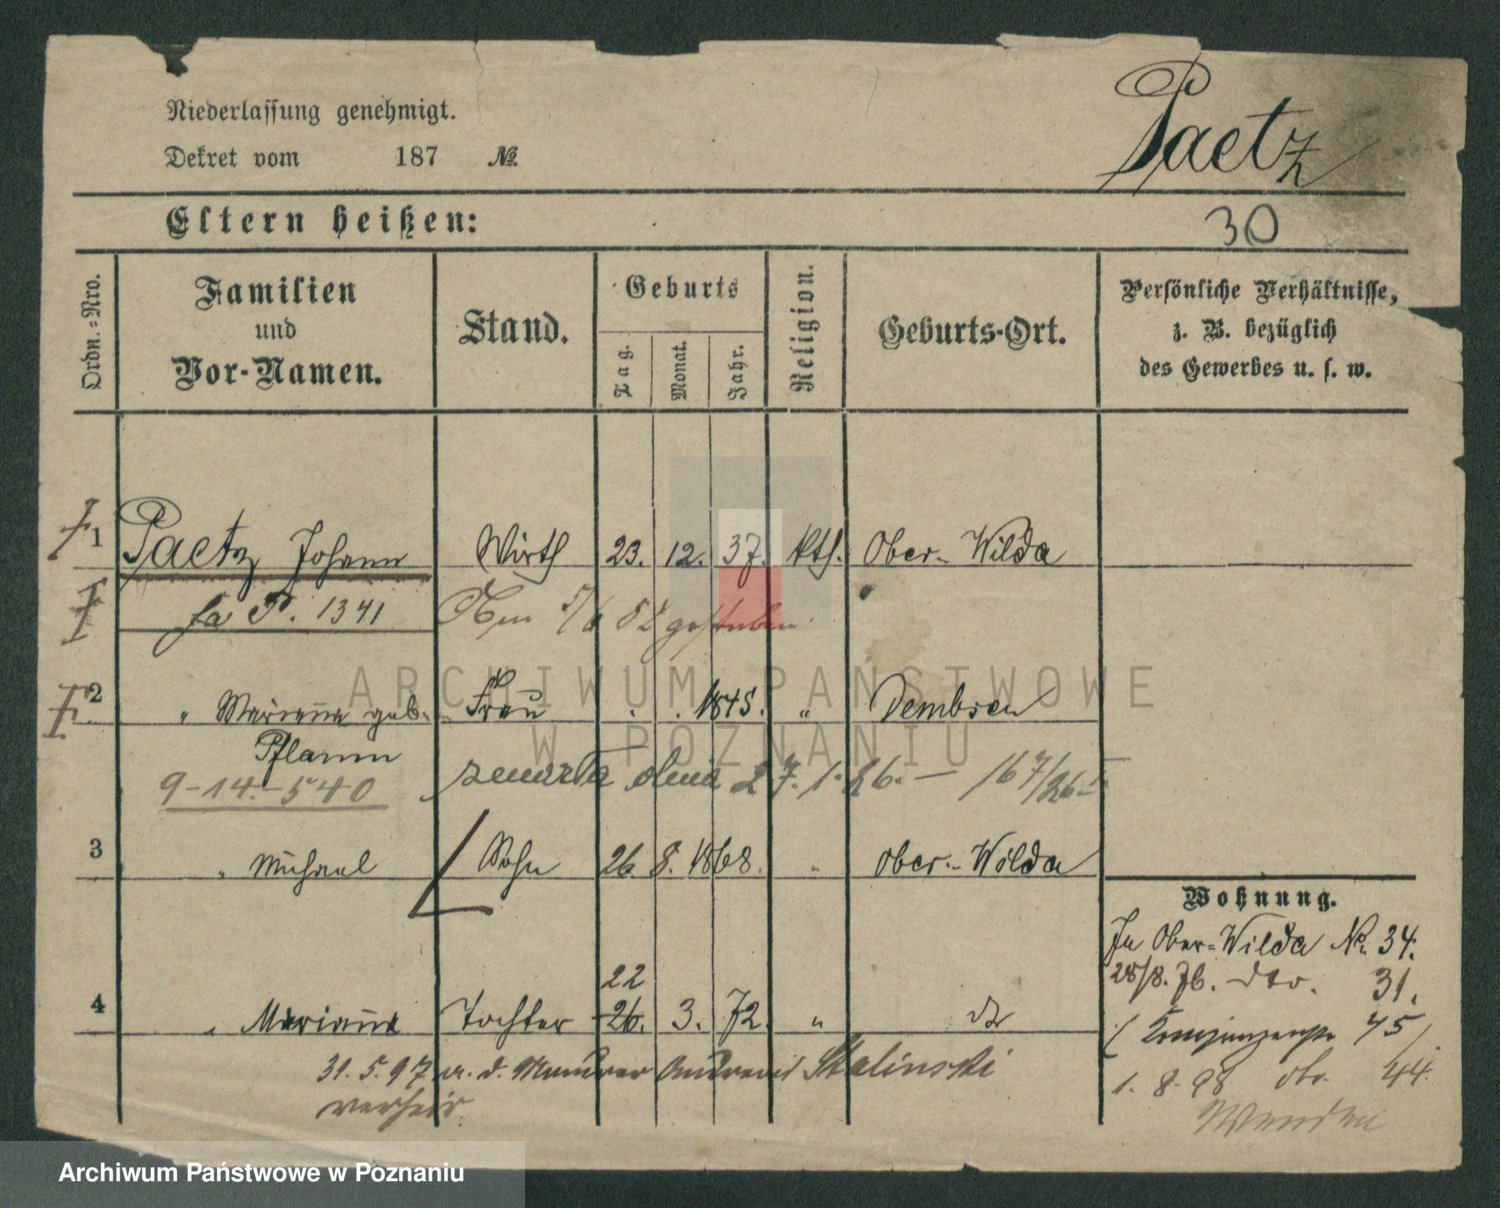 Niederlassung genehmigt.
Dekret vom 187 №
Paetz
Eltern heißen:
30
Ordn.-Nro.
Familien
und
Vor-Namen.
Stand.
Geburts
Tag.
Monat.
Jahr.
Religion.
Geburts-Ort.
Persönliche Verhältnisse,
z. B. bezüglich
des Gewerbes u. s. w.
1 Paetz Johann Wirth 23. 12. 37. kth. Ober-Wilda
fa P. 1341 gestorben
2 " Marianna geb. Frau 1845. " Dembsen
Pflaum
9-14.-540 zmarła dnia 27.1.26. — 167/26
3 " Michael Sohn 26. 8. 1868. " Ober-Wilda
Wohnung.
In Ober-Wilda No. 34.
28/8. 76. dto. 31.
22
4 " Marianna Tochter 26. 3. 72. " do
45
31.5.97 m. d. Maurer Stalinski
verheir.
1. 8. 98 do. 44.
ARCHIWUM PAŃSTWOWE
W POZNANIU
Archiwum Państwowe w Poznaniu